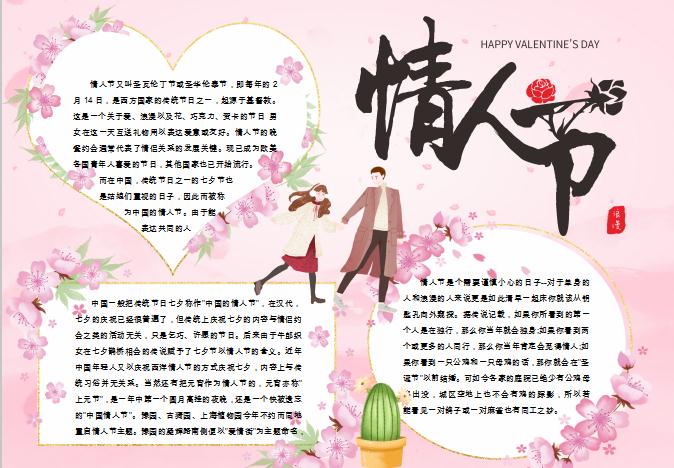 情人节
HAPPY VALENTINE'S DAY
浪漫
情人节又叫圣瓦伦丁节或圣华伦泰节，即每年的2
月14日，是西方国家的传统节日之一，起源于基督教。
这是一个关于爱、浪漫以及花、巧克力、贺卡的节日 男
女在这一天互送礼物用以表达爱意或友好。情人节的晚
餐约会通常代表了情侣关系的发展关键。现已成为欧美
各国青年人喜爱的节日，其他国家也已开始流行。
而在中国，传统节日之一的七夕节也
是姑娘们重视的日子，因此而被称
为中国的情人节。由于能
表达共同的人
中国一般把传统节日七夕称作"中国的情人节"，在汉代，
七夕的庆祝已经很普遍了，但传统上庆祝七夕的内容与情侣约
会之类的活动无关，只是乞巧、许愿的节日。后来由于牛郎织
女在七夕鹊桥相会的传说赋予了七夕节以情人节的含义。近年
中国年轻人又以庆祝西洋情人节的方式庆祝七夕，内容上与传
统习俗并无关系。当然还有把元宵作为情人节的，元宵亦称"
上元节"，是一年中第一个圆月高挂的夜晚，还是一个快被遗忘
的"中国情人节"。豫园、古漪园、上海植物园今年不约而同地
重启情人节主题。豫园的凝辉路南侧便以"爱情街"为主题命名，
情人节是个需要谨慎小心的日子--对于单身的
人和浪漫的人来说更是如此清早一起床你就该从钥
匙孔向外窥探。据传说记载，如果你所看到的第一
个人是在独行，那么你当年就会独身;如果你看到两
个或更多的人同行，那么你当年肯定会觅得情人;如
果你看到一只公鸡和一只母鸡的话，那你就会在"圣
诞节"以前结婚。可如今冬家的庭院已绝少有公鸡母
出没，城区空地上也不会有鸡的踪影，所以若
能看见一对鸽子或一对麻雀也有同工之妙。